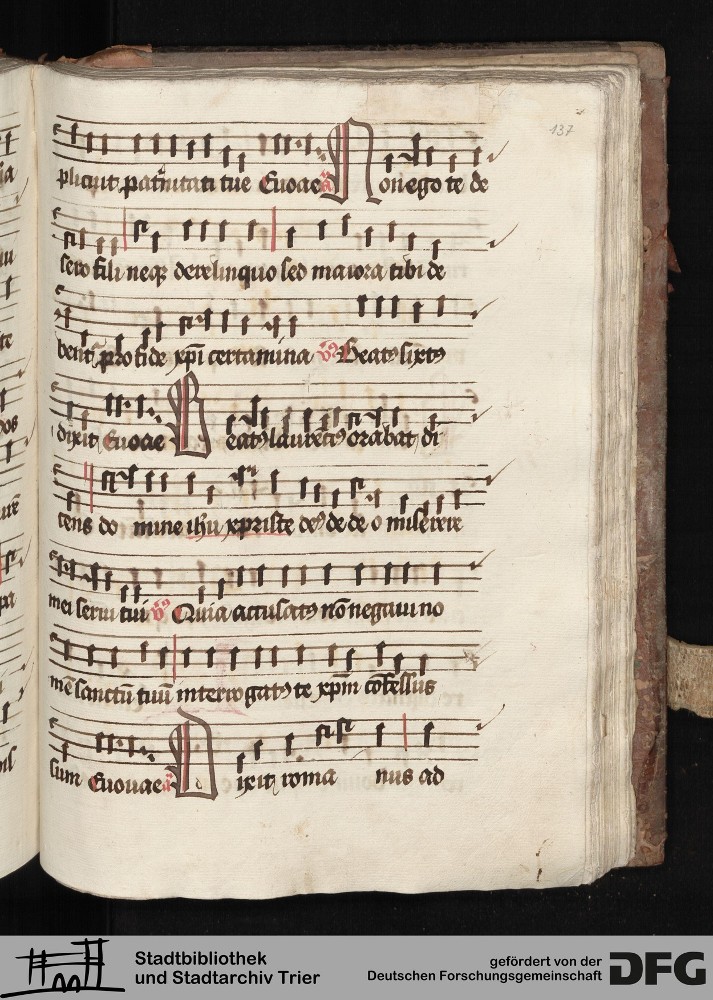 137
plicuit paternitati tue Euoae a Non ego te de
sero fili neqz derelinquo sed maiora tibi de
bent pro fide xpi certamina vs Beatus sixtus
dixit Euoae Beatus laurencius orabat di
cens do mine ihu xpriste de9 de de o miserere
mei serui tui vs Quia accusat9 nō negaui no
mē sanctū tuū interrogat9 te xpm cōfessus
sum Euouae a Dixit roma nus ad
Stadtbibliothek
und Stadtarchiv Trier
gefördert von der
Deutschen Forschungsgemeinschaft
DFG